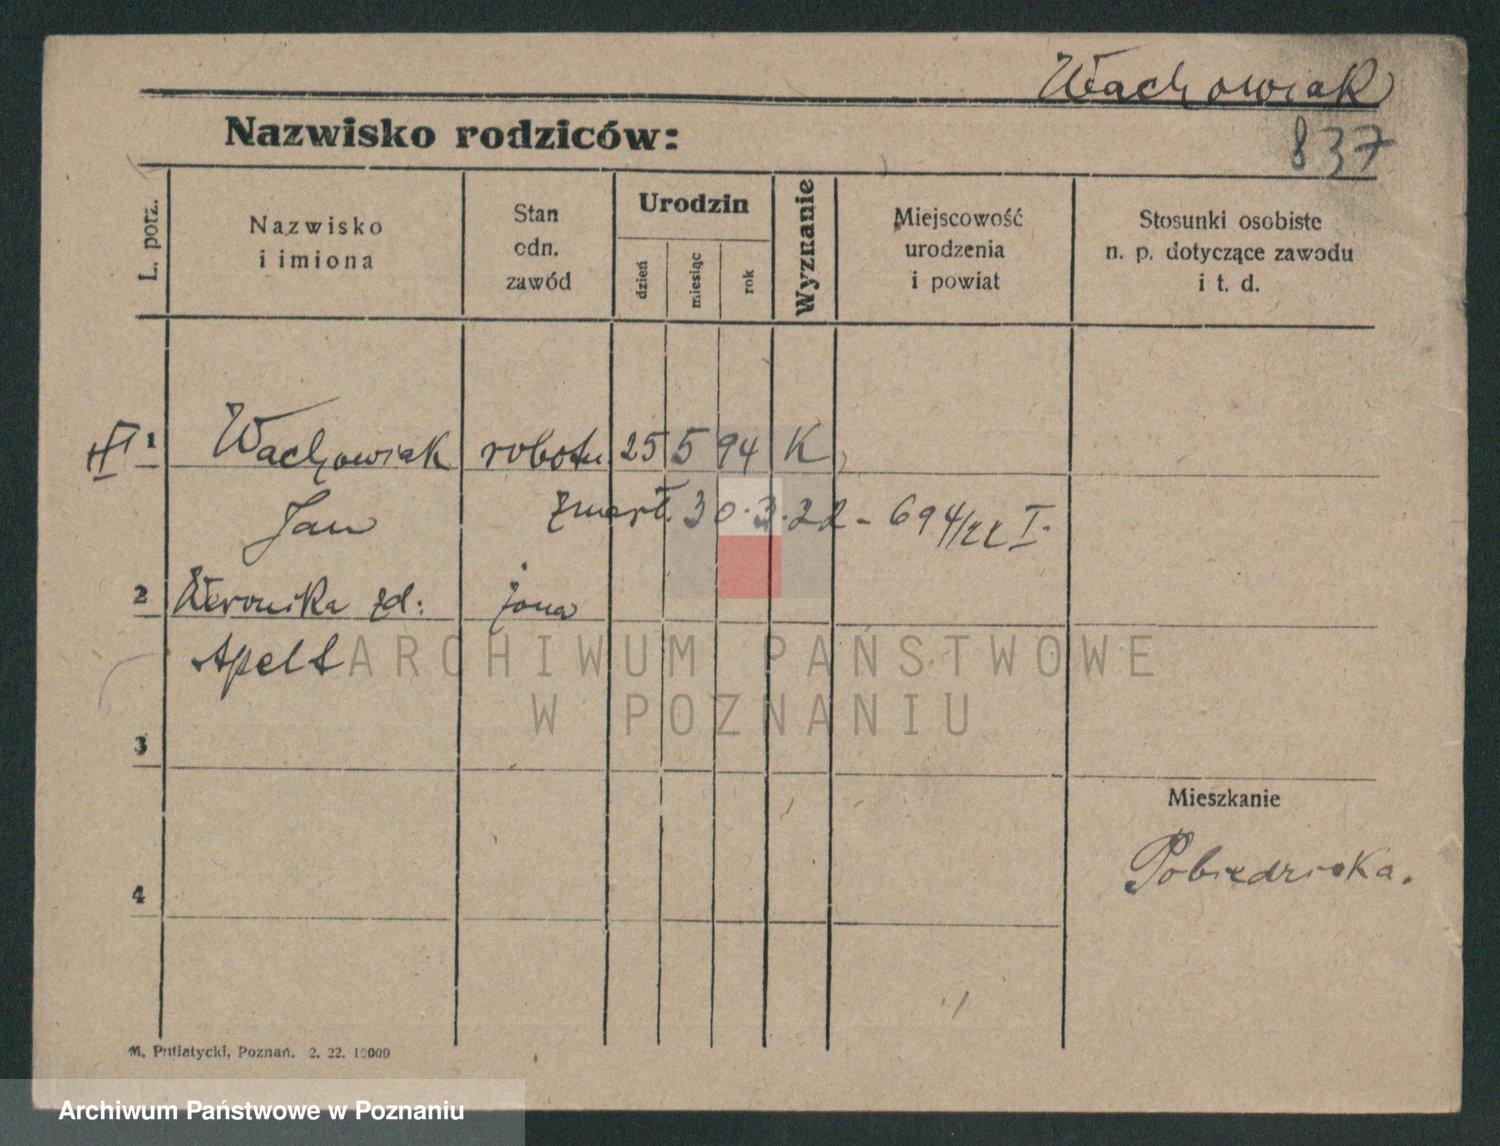 Wachowiak
Nazwisko rodziców:
837
L. porz.
Nazwisko
i imiona
Stan
odn.
zawód
Urodzin
dzień
miesiąc
rok
Wyznanie
Miejscowość
urodzenia
i powiat
Stosunki osobiste
n. p. dotyczące zawodu
i t. d.
1 Wachowiak robotn 25 5 94 K
Jan zmarł. 30.3.22 - 694/22 I.
2 Weronika zd: żona
Apelt
ARCHIWUM PAŃSTWOWE
W POZNANIU
3
Mieszkanie
4
Pobiedziska.
M. Putiatycki, Poznań. 2. 22. 10000
Archiwum Państwowe w Poznaniu